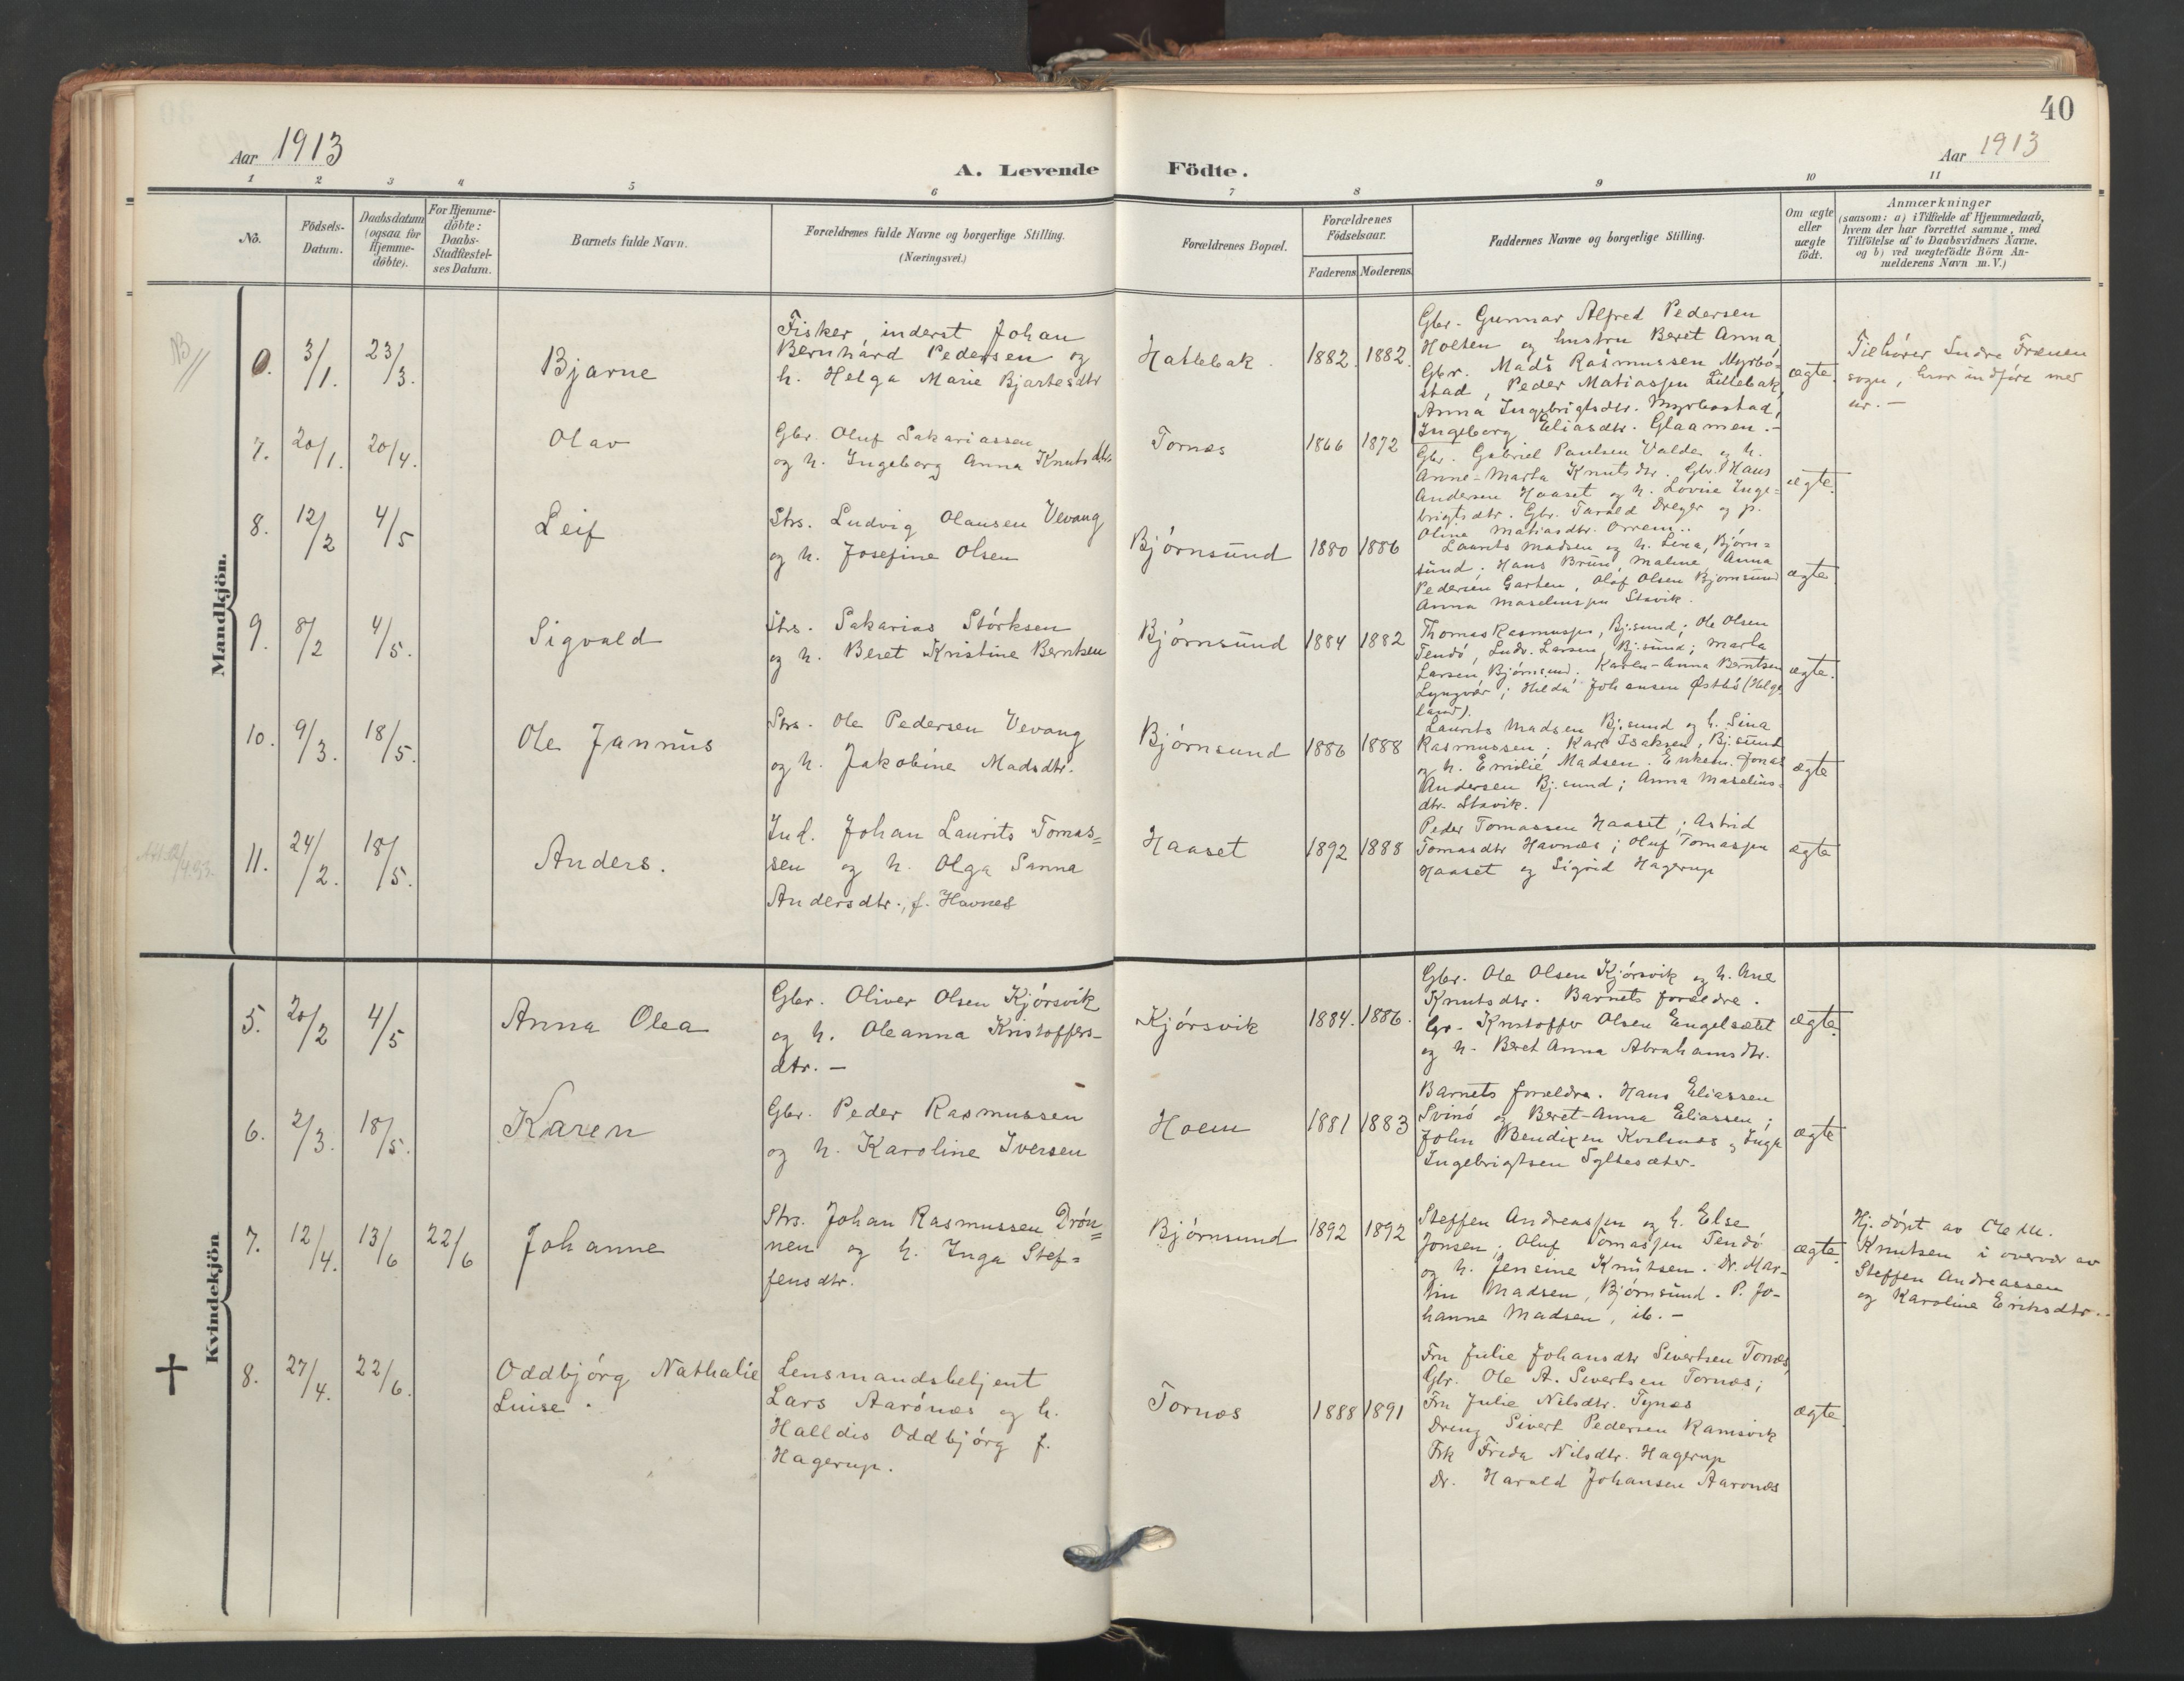 40
Aar 1913
A. Levende Födte.
Aar 1913
1 2 3 4 5 6 7 8 9 10 11
No.
Födsels-
Datum.
Daabsdatum
(ogsaa for
Hjemme-
döbte).
For Hjemme-
döbte:
Daabs-
Stadfæstel-
ses Datum.
Barnets fulde Navn.
Forældrenes fulde Navne og borgerlige Stilling.
(Næringsvei.)
Forældrenes Bopæl.
Forældrenes
Födselsaar.
Faderens Moderens
Faddernes Navne og borgerlige Stilling.
Om ægte
eller
uægte
født.
Anmærkninger
(saasom: a) i Tilfælde af Hjemmedaab,
hvem der har forrettet samme, med
Tilföielse af to Daabsvidners Navne.
og b) ved uægtefödte Börn An-
melderens Navn m. V.)
Mandkjön.
B
0. 3/1. 23/3.
Bjarne
Fisker, inderst Johan
Bernhard Pedersen og
h. Helga Marie Bjartesdtr
Hattebak
1882. 1882.
Gbr. Gunnar Alfred Pedersen
Holten og hustru Beret Anna,
Gbr. Mads Rasmussen Myrbo-
stad, Peder Matiassen Lillebak,
Anna Ingebrigtsdtr. Myrbostad,
Ingeborg Eliasdtr. Glaamen.-
ægte.
Tilhører Indre Frænen
sogn, hvor indføres med
nr. -
7. 20/1. 20/4.
Olav
Gbr. Oluf Sakariassen
og h. Ingeborg Anna Knutsdtr
Tornes
1866 1872
Gbr. Gabriel Paulsen Valde og h.
Anne-Marta Knutsdtr. Gbr. Hans
Andersen Haaset og h. Lovise Inge-
brigtsdtr. Gbr. Tarald Dreger og p.
Oline Matiasdtr. Orrem..
ægte.
8. 12/2 4/5
Leif
Strs. Ludvig Olausen Vevang
og h. Josefine Olsen
Bjórnsund
1880 1886
Laurits Madsen og h. Lina, Bjórn=
sund. Hans Brun, Malme, Anna
Pedersen Garten, Olaf Olsen Bjornsund
Anna Maseliussen Stavik.
ægte.
9. 8/2 4/5.
Sigvald
Strs. Sakarias Stórksen
og h. Beret Kristine Berntsen
Bjórnsund
1884 1882
Thomas Rasmussen, Bj.sund; Ole Olsen
Tendó, Ludv. Larsen, Bj.sund; Marta
Larsen Bjórnsund. Karen-Anna Berntsen
Lyngvær; Hilda Johansen Østbó (Helge
land).
ægte.
10. 9/3. 18/5.
Ole Jannus
Strs. Ole Pedersen Vevang
og h. Jakobine Madsdtr.
Bjórnsund
1886 1888
Laurits Madsen Bj.sund og h. Lina
Rasmussen; Karl Isaksen, Bj.sund
og h. Emilie Madsen. Enkem. Jonas
Andersen Bj.sund; Anna Maselius-
dtr. Stavik.
ægte
11. 24/2. 18/5.
Anders.
Ind. Johan Laurits Tomas=
sen og h. Olga Sanna
Andersdtr., f. Havnes
Haaset
1892 1888
Peder Tomassen Haaset; Astrid
Tomasdtr Havnes; Oluf Tomassen
Haaset og Sigrid Hagerup
ægte
Kvindekjön
5. 20/2 4/5
Anna Olea
Gbr. Oliver Olsen Kjórsvik
og h. Oleanna Kristoffers-
dtr. -
Kjórsvik
1884. 1886.
Gbr. Ole Olsen Kjórsvik og h. Ane
Knutsdtr. Barnets foreldre.
Gbr. Kristoffer Olsen Engelsætet
og h. Beret Anna Abrahamsdtr.
ægte.
6. 2/3. 18/5.
Karen
Gbr. Peder Rasmussen
og h. Karoline Iversen
Hoem
1881 1883
Barnets foreldre. Hans Eliassen
Svinó og Beret-Anna Eliassen;
John Bendixen Kvalsnes og Inga
Ingebrigtsen Syltesæter.
ægte
7. 12/4. 13/6 22/6
Johanne
Strs. Johan Rasmussen Drón=
nen og h. Inga Stef=
fensdtr.
Bjórnsund
1892 1892
Steffen Andreassen og h. Else
Jonsen; Oluf Tomassen Tendó
og h. Jensine Knutsen. Dr. Mar-
tin Madsen, Bjórnsund. P. Jo-
hanna Madsen, ib. -
ægte.
Hj. dópt av Ole M.
Knutsen i overvær av
Steffen Andreassen
og Karoline Eriksdtr..
8. 27/4. 22/6.
Oddbjórg Nathalie
Luise.
Lensmandsbetjent
Lars Aarónes og h.
Halldis Oddbjórg f.
Hagerup.
Tornes
1888 1891
Fru Julie Johansdtr Sivertsen Tornes,
Gbr. Ole A. Sivertsen Tornes;
Fru Julie Nilsdtr. Tynes
Dreng Sivert Pedersen Ramsvik
Frk Frida Nilsdtr. Hagerup
Dr. Harald Johansen Aarones
ægte.